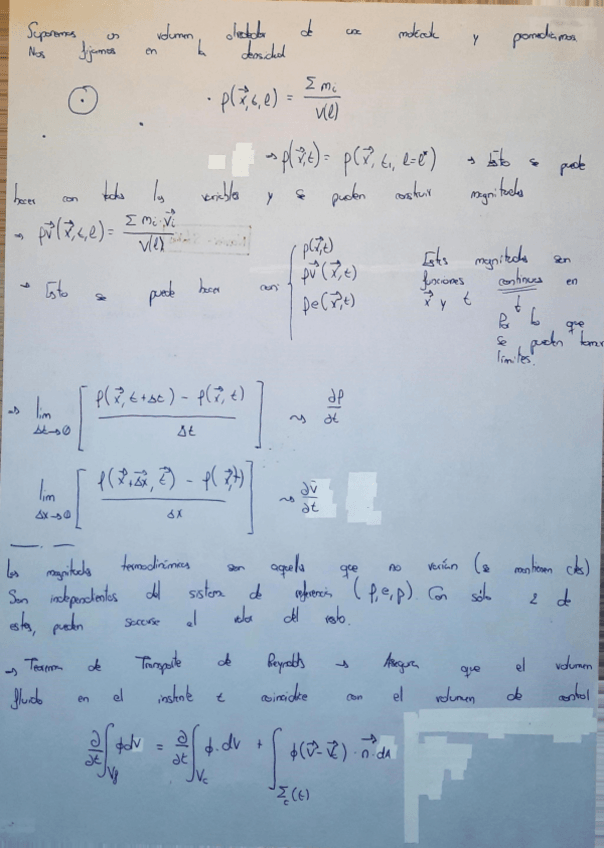 Suponemos un volumen alrededor de una molécula y promediamos.
Nos fijamos en la densidad
· ρ(x⃗,t,l) = Σ mᵢ / V(l)
⇒ ρ(x⃗,t) = ρ(x⃗, t, l=l*) → Esto se puede
hacer con todas las variables y se pueden construir magnitudes
→ ρv⃗(x⃗,t,l) = Σ mᵢ·v⃗ᵢ / V(l)
→ Esto se puede hacer con: { ρ(x⃗,t) ρv⃗(x⃗,t) ρe(x⃗,t)
Estas magnitudes son
funciones continuas en
x⃗ y t
Por lo que
se pueden tomar
límites.
→ lim Δt→0 [ (ρ(x⃗, t+Δt) - ρ(x⃗, t)) / Δt ] ⤳ ∂ρ/∂t
lim Δx→0 [ (ρ(x⃗+Δx⃗, t) - ρ(x⃗,t)) / Δx ] ⤳ ∂v̄/∂t
Las magnitudes termodinámicas son aquellas que no varían (se mantienen ctes)
Son independientes del sistema de referencia (ρ,e,p). Con sólo 2 de
estas, pueden sacarse el valor del resto.
→ Teorema de Transporte de Reynolds → Asegura que el volumen
fluido en el instante t coincidire con el volumen de control
∂/∂t ∫_Vf ϕdv = ∂/∂t ∫_Vc ϕ·dv + ∫_Σc(t) ϕ(v⃗-v⃗c)·n⃗·dA